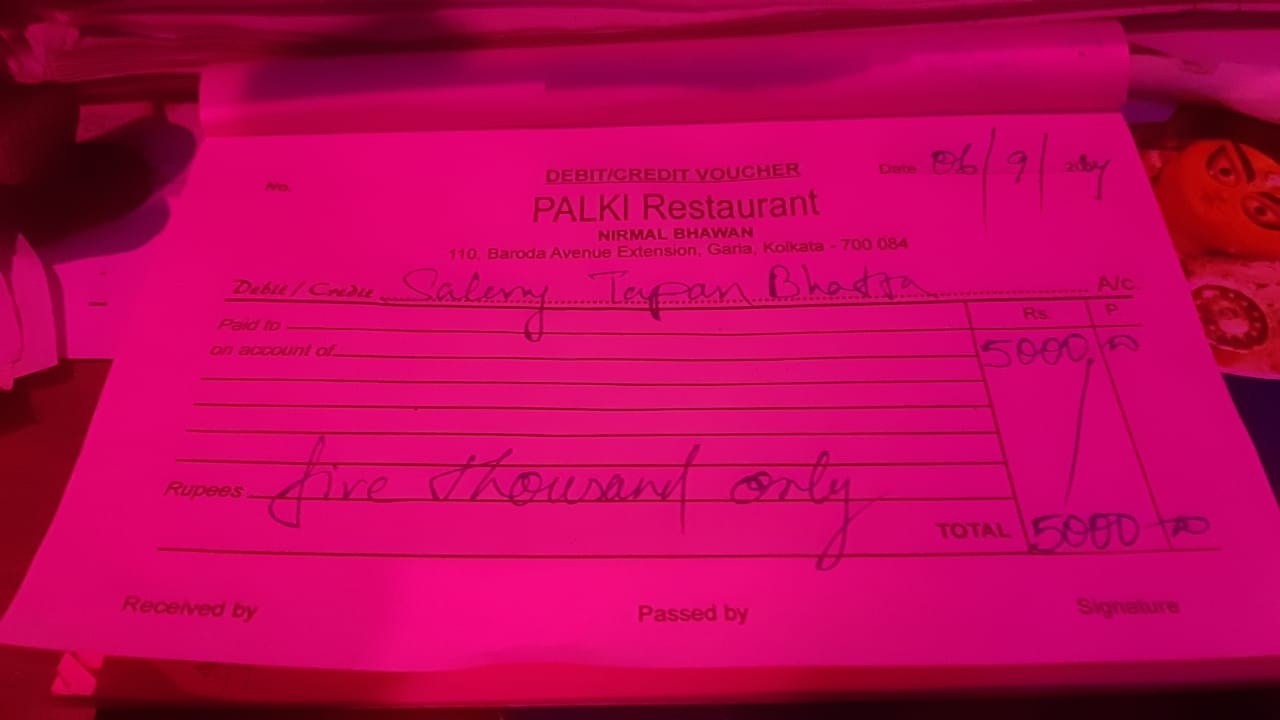 No.
DEBIT/CREDIT VOUCHER
Date 06/9/2024
PALKI Restaurant
NIRMAL BHAWAN
110, Baroda Avenue Extension, Garia, Kolkata - 700 084
Debit / Credit Salery Tapan Bhadra A/c.
Rs. P.
Paid to
on account of 5000, 00
Rupees five thousand only
TOTAL 5000 00
Received by Passed by Signature